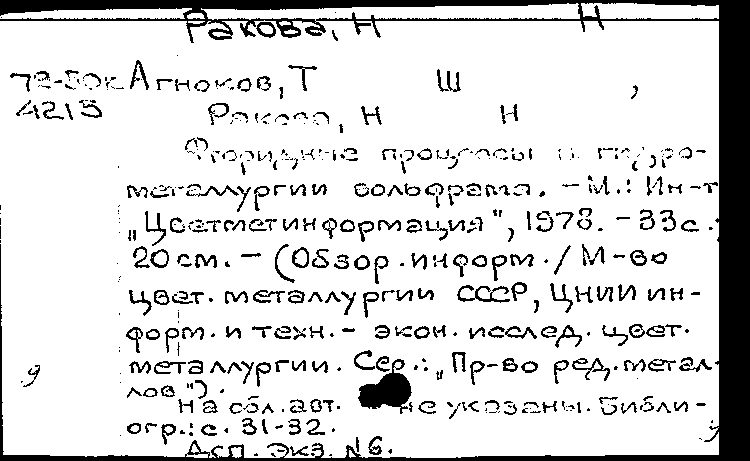 Ракова, Н Н
78-50к Агноков, Т Ш ,
4213
Ракова, Н Н
Фторидные процессы в гидро-
металлургии вольфрама. - М.: Ин-т
„Цветметинформация", 1978. - 33с.;
20 см. - (Обзор. информ. / М-во
цвет. металлургии СССР, ЦНИИ ин-
форм. и техн.- экон. исслед. цвет.
металлургии. Сер.: „Пр-во ред. метал-
лов").
На обл. авт. не указаны. Библи-
огр.: с. 31-32.
Дсп. Экз. N6.